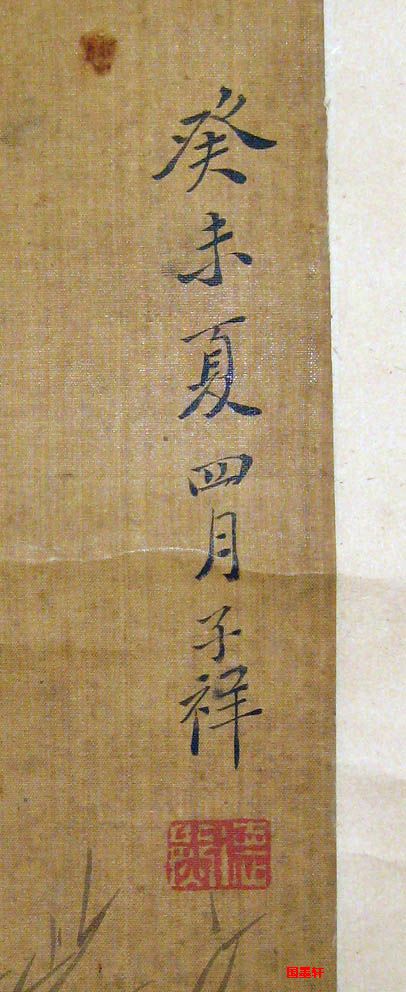 癸未夏四月子祥
国墨轩